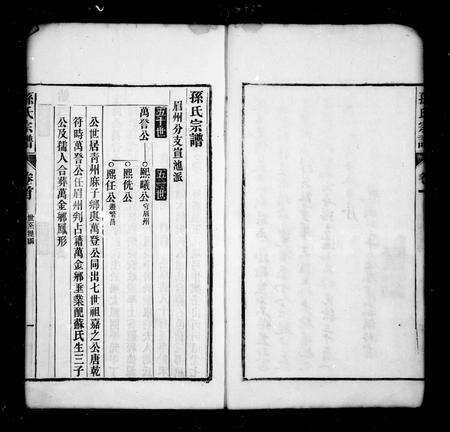 孫氏宗譜
眉州分支宣池派
五十世
五十一世
萬登公
熙曦公 守眉州
熙侁公
熙任公 遷繁昌
公世居青州麻子鄉與萬登公同出七世祖嘉之公唐乾
符時萬登公任眉州判占籍萬金鄉垂業配蘇氏生三子
公及孺人合葬萬金鄉鳳形
孫氏宗譜
卷首
一
孫氏宗譜